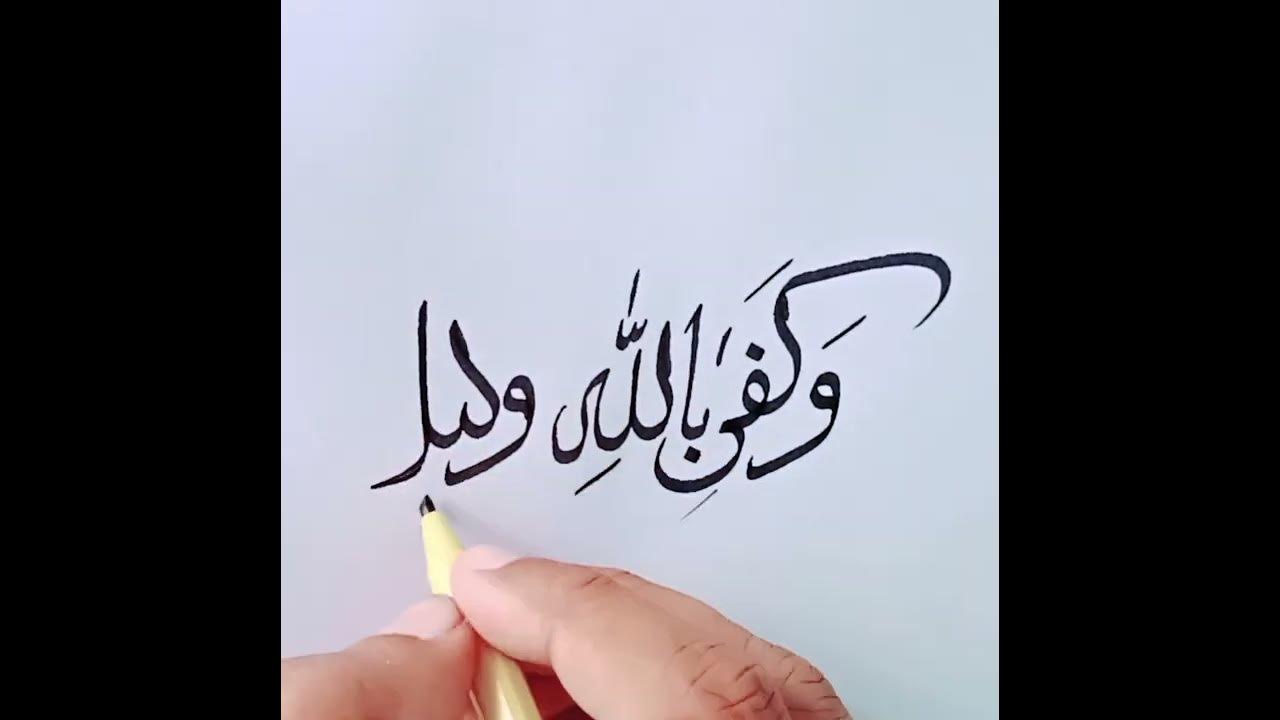 وَكَفَىٰ بِاللَّهِ وليا